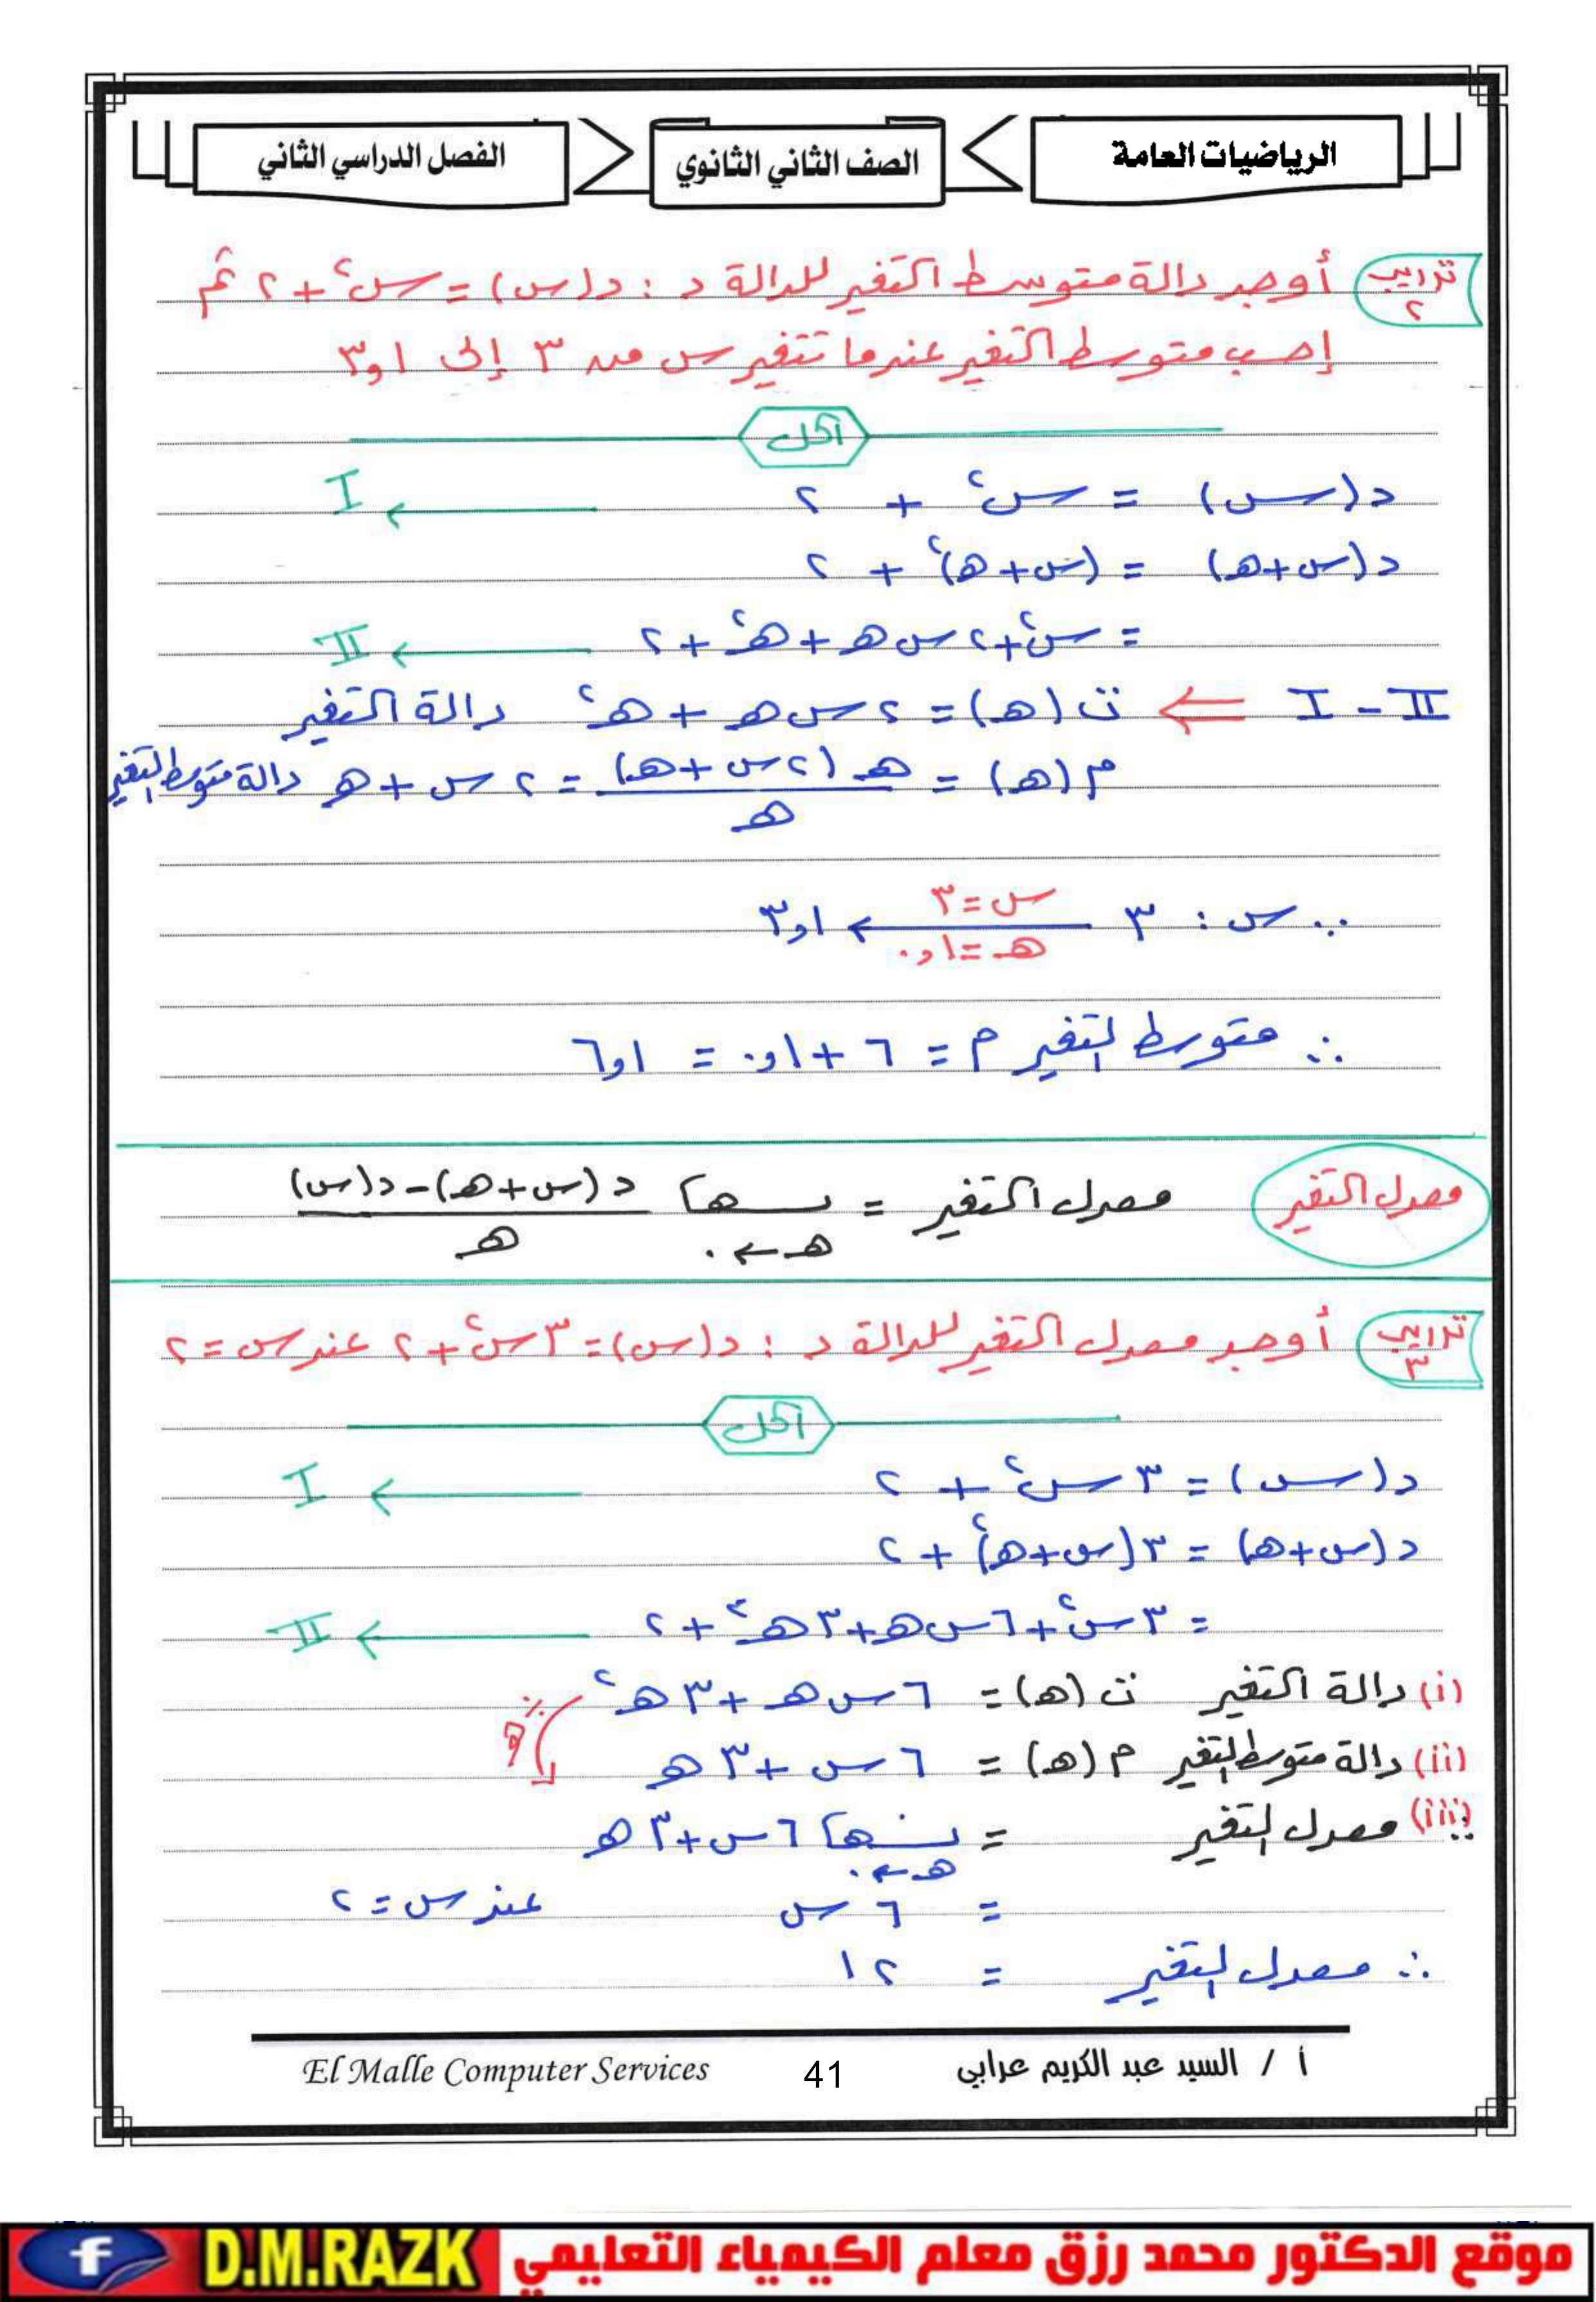 الرياضيات العامة
الصف الثاني الثانوي
الفصل الدراسي الثاني
تدريب ٢ أوجد دالة متوسط التغير للدالة د : د(س) = س٢ + ٢ ثم
إحسب متوسط التغير عندما تتغير س من ٣ إلى ٣,١
الحل
د(س) = س٢ + ٢ ← I
د(س+هـ) = (س+هـ)٢ + ٢
= س٢ + ٢ س هـ + هـ٢ + ٢ ← II
II - I ⇐ ت(هـ) = ٢ س هـ + هـ٢ دالة التغير
م(هـ) = هـ(٢س + هـ) / هـ = ٢ س + هـ دالة متوسط التغير
∵ س : ٣ ← ٣,١
س = ٣
هـ = ٠,١
∴ متوسط التغير م = ٦ + ٠,١ = ٦,١
معدل التغير معدل التغير = نهـــا هـ ← ٠ د(س+هـ) - د(س) / هـ
تدريب ٣ أوجد معدل التغير للدالة د : د(س) = ٣س٢ + ٢ عند س = ٢
الحل
د(س) = ٣ س٢ + ٢ ← I
د(س+هـ) = ٣(س+هـ)٢ + ٢
= ٣س٢ + ٦ س هـ + ٣ هـ٢ + ٢ ← II
(i) دالة التغير ت(هـ) = ٦ س هـ + ٣ هـ٢
÷ هـ
(ii) دالة متوسط التغير م(هـ) = ٦ س + ٣ هـ
(iii) معدل التغير = نهـــا هـ ← ٠ ٦ س + ٣ هـ
= ٦ س عند س = ٢
∴ معدل التغير = ١٢
أ / السيد عبد الكريم عرابي
41
El Malle Computer Services
موقع الدكتور محمد رزق معلم الكيمياء التعليمي D.M.RAZK f